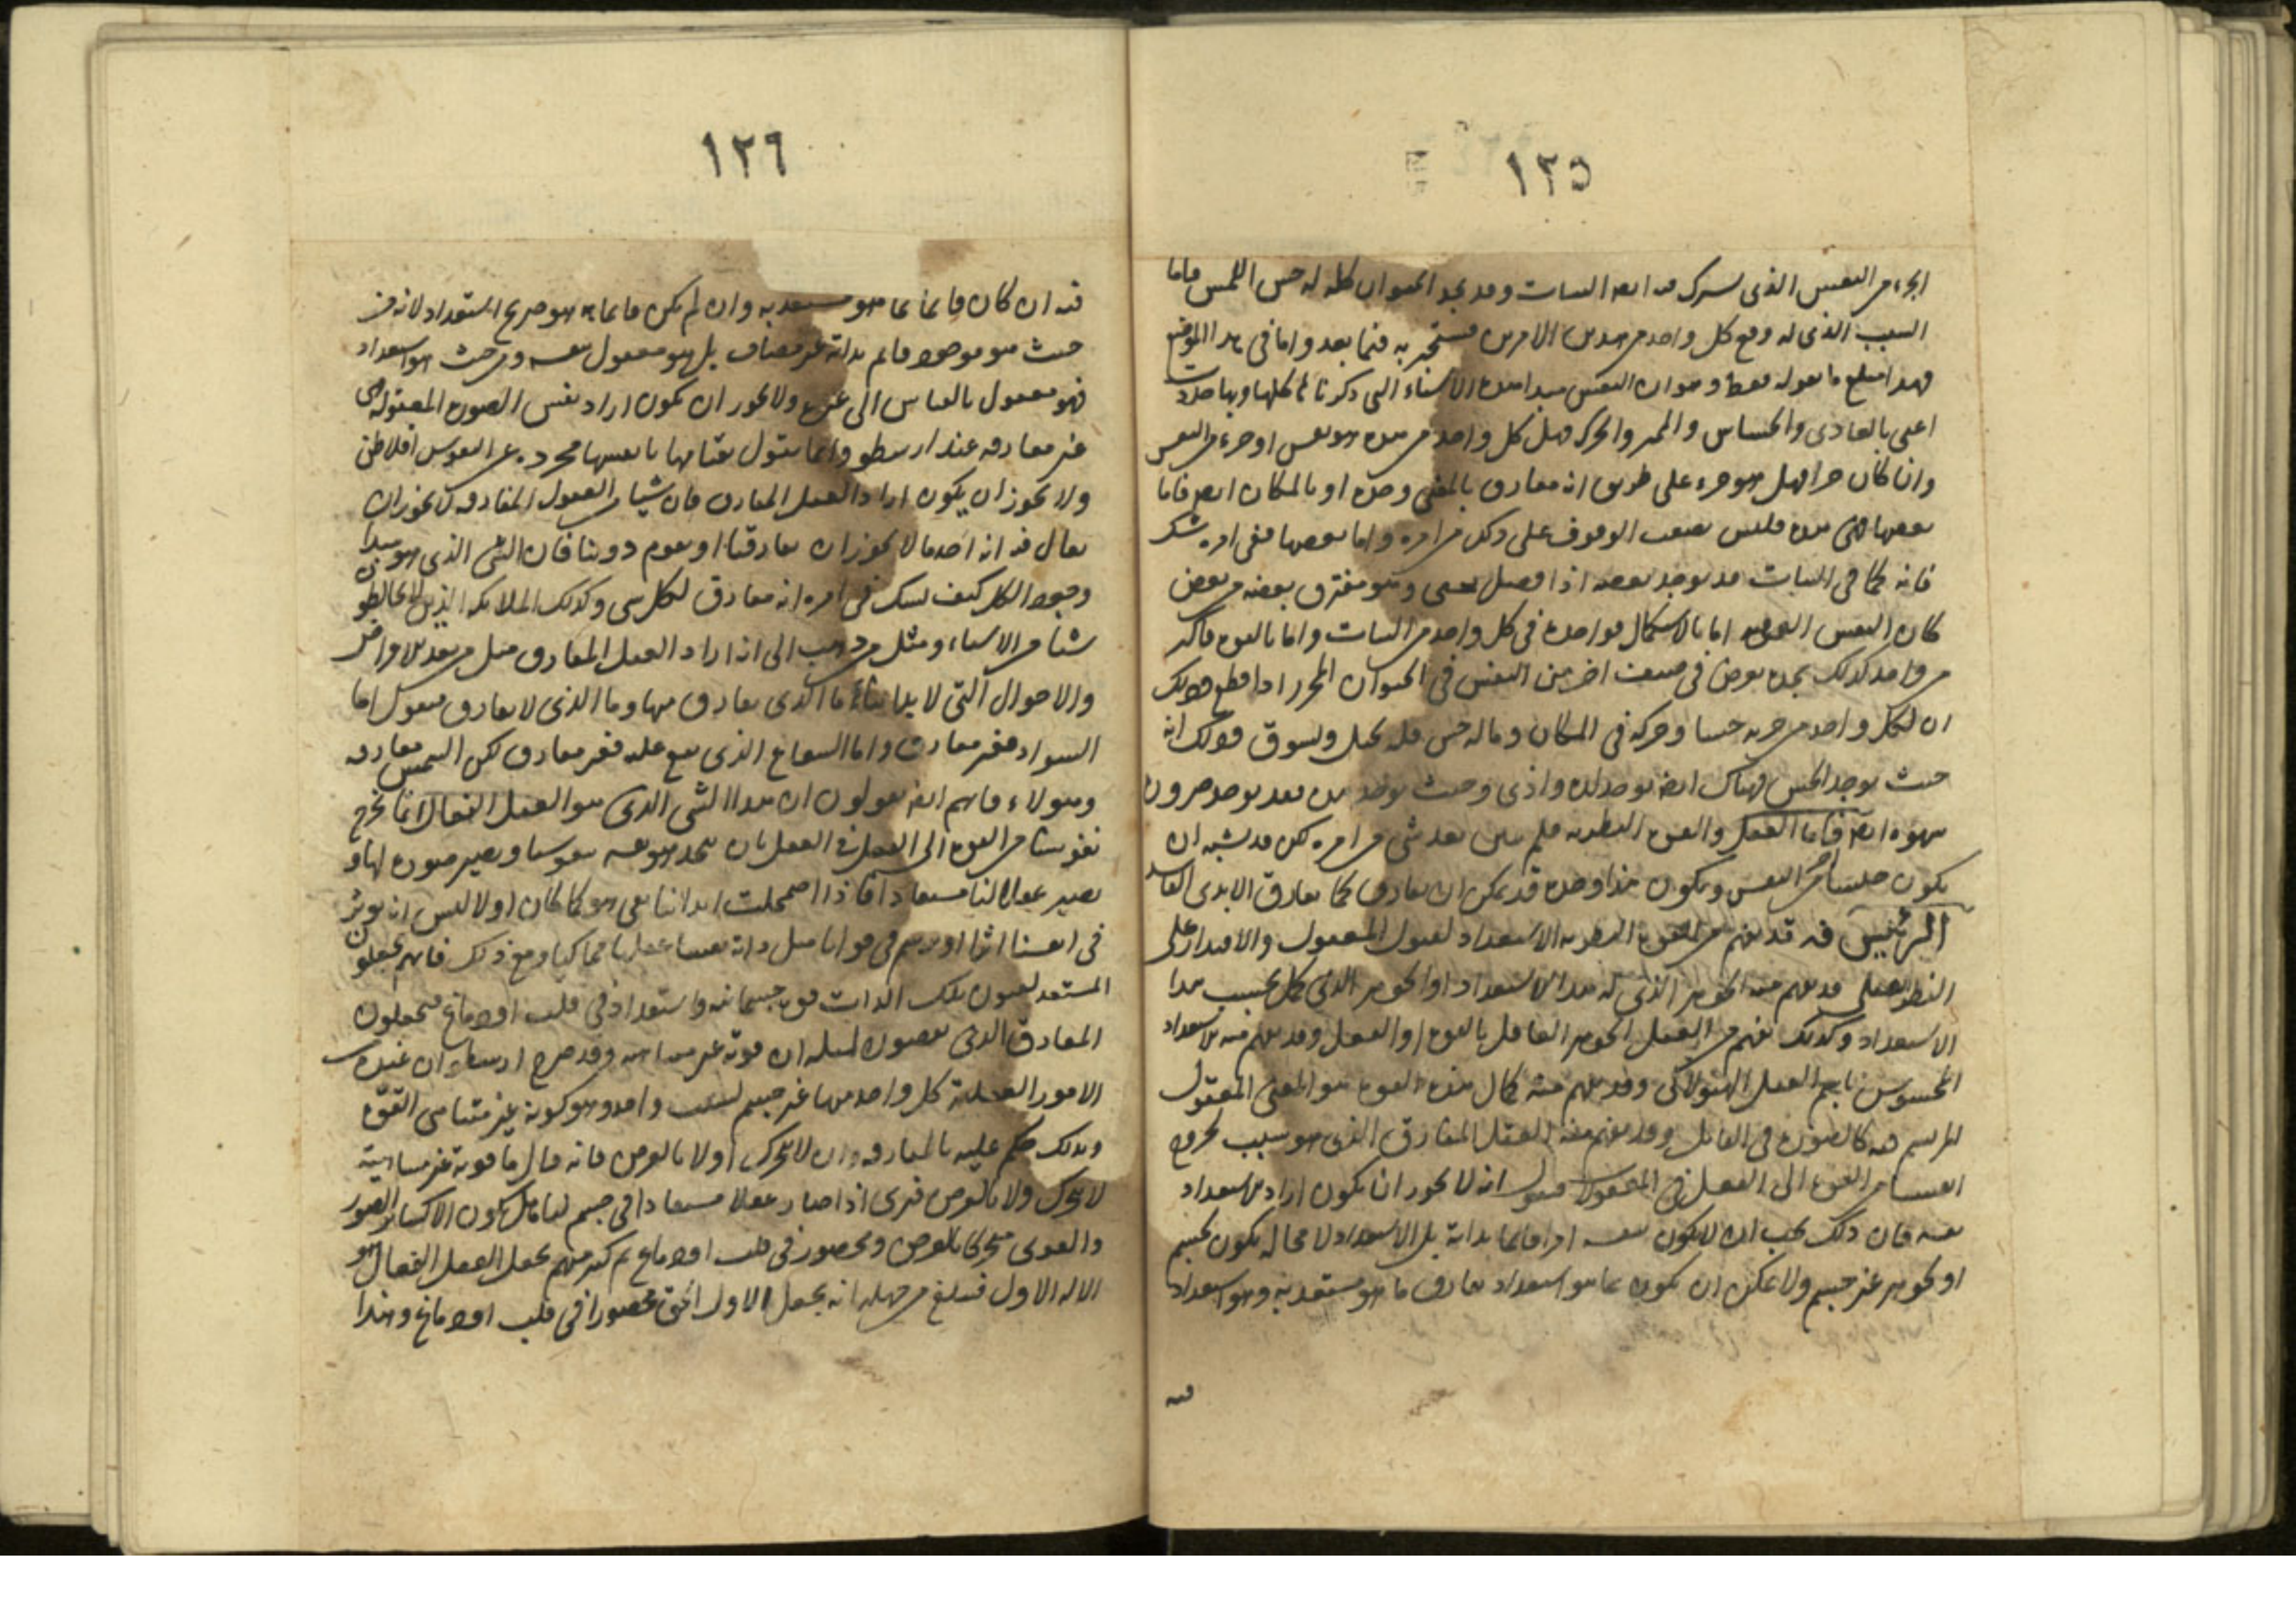 ١٢٥
الجزء من النفس الذى يشترك فيه ايضا النبات وقد نجد الحيوان كله له حس اللمس فاما
السبب الذى له وقع كل واحد من هذين الامرين فسنخبر به فيما بعد واما فى هذا الموضع
فهذا مبلغ ما نقوله فقط وهو ان النفس مبدا هذه الاشياء التى ذكرناها كلها وبها حدت
اعنى بالغاذى والحساس والمميز والحركة فهل كل واحد من هذه هو نفس او جزء من النفس
وان كان جزا فهل هو جزء على طريق انه مفارق بالمعنى وحده او بالمكان ايضا فاما
بعضها فمن هذه فليس يصعب الوقوف على ذلك من امره واما بعضها ففى امره شك
فانه كما فى النبات قد يوجد بعضه اذا فصل يحيى وهو مفترق بعضه من بعض
كان النفس التى فيه اما بالاستكمال فواحدة فى كل واحد من النبات واما بالقوة فاكثر
من واحد كذلك نجده يعرض فى صنف اخر من النفس فى الحيوان المحزز اذا قطع وذلك
ان لكل واحد من جزيه حسا وحركة فى المكان وما له حس فله تخيل وتشوق وذلك انه
حيث يوجد الحس فهناك ايضا يوجد لذة واذى وحيث يوجد هذان فقد يوجد ضرورة
شهوة ايضا فاما العقل والقوة النظرية فلم يتبين بعد شى من امره لكن قد يشبه ان
يكون جنسا اخر من النفس ويكون هذا وحده قد يمكن ان يفارق كما يفارق الابدى الفاسد
الرئيس فيه قد يفهم من القوة النظرية الاستعداد لقبول المعقول والاقتدار على
النظر العقلى وقد يفهم منه الجوهر الذى له هذا الاستعداد او الجوهر الذى كمل بحسب هذا
الاستعداد وكذلك يفهم من العقل الجوهر العاقل بالقوة او العقل وقد يفهم منه الاستعداد
المخصوص باسم العقل الهيولانى وقد يفهم منه كمال هذه القوة هو المعنى المعقول
المرتسم فيه كالصورة فى القابل وقد يفهم منه العقل المفارق الذى هو سبب يخرج
انفسنا من القوة الى الفعل فى المعقولات فنقول انه لا يجوز ان يكون اراد الاستعداد
نفسه فان ذلك يجب ان لا يكون نفسه امرا قائما بذاته بل الاستعداد لا محاله يكون لجسم
او لجوهر غير جسم ولا يمكن ان يكون بما هو استعداد يفارق ما هو مستعد به وهو استعداد
فيه
١٢٦
فيه ان كان قائما بما هو مستعد به وان لم يكن قائما به فهو صريح استعداد لانه من
حيث هو موجود قائم بذاته غير مضاف بل هو معقول بنفسه ومن حيث هو استعداد
فهو معقول بالقياس الى غيره ولا يجوز ان يكون اراد نفس الصورة المعقولة فهى
غير مفارقه عند ارسطو وانما يقول بقيامها بانفسها مجرده عن النفوس افلاطن
ولا يجوز ان يكون اراد العقل المفارق فان شيا من العقول المفارقه لا يجوز ان
يقال فيه انه احد ما لا يجوز ان يفارقنا او يقوم دوننا فان الشى الذى هو مبدا
وجود الكل كيف يشك فى امره انه مفارق لكل شى وكذلك الملائكه الذين لا يخالطون
شيا من الاشياء ومثل من ذهب الى انه اراد العقل المفارق مثل من يعد الامراض
والاحوال التى لا بداننا ما الذى يفارق منها وما الذى لا يفارق فيقول اما
السواد فغير مفارق واما الشعاع الذى يقع عليه فغير مفارق لكن الشمس مفارقه
وهولاء فانهم ايضا يقولون ان هذا الشى الذى هو العقل الفعال انما يخرج
نفوسنا من القوة الى العقل فى الفعل بان يتحد هو نفسه بنفوسنا ويصير صورة لها او
يصير عقلا لنا مستفادا فاذا اضمحلت ابداننا بقى هو كما كان اولا ليس انه يوثر
فى انفسنا اثرا او يرسم فى قوانا مثل ذاته نفسا عقليا محاكيا ومع ذلك فانهم يجعلون
المستعد لقبول تلك الذات قوة جسمانيه واستعدادا فى قلب او دماغ فيجعلون
المفارق الذى يعضون لمثله ان قوته غير متناهيه وقد صرح ارسطو ان عنده
الامور العقلية كل واحد منها غير جسم لسبب واحد وهو كونه غير متناهى القوة
وبذلك حكم عليه بالمفارقه وان لا يتحرك اولا بالعرض فانه قال ما قوته غير متناهية
لا يتحرك ولا بالعرض فنرى اذا صار عقلا مستفادا فى جسم لنا مثل هذه الاكتساب الصور
والقوى متحركا بالعرض ومحصور فى قلب او دماغ ثم كثير منهم يجعل العقل الفعال هو
الاله الاول فيبلغ من جهله انه يجعل الاول الحق محصورا فى قلب او دماغ وهذا